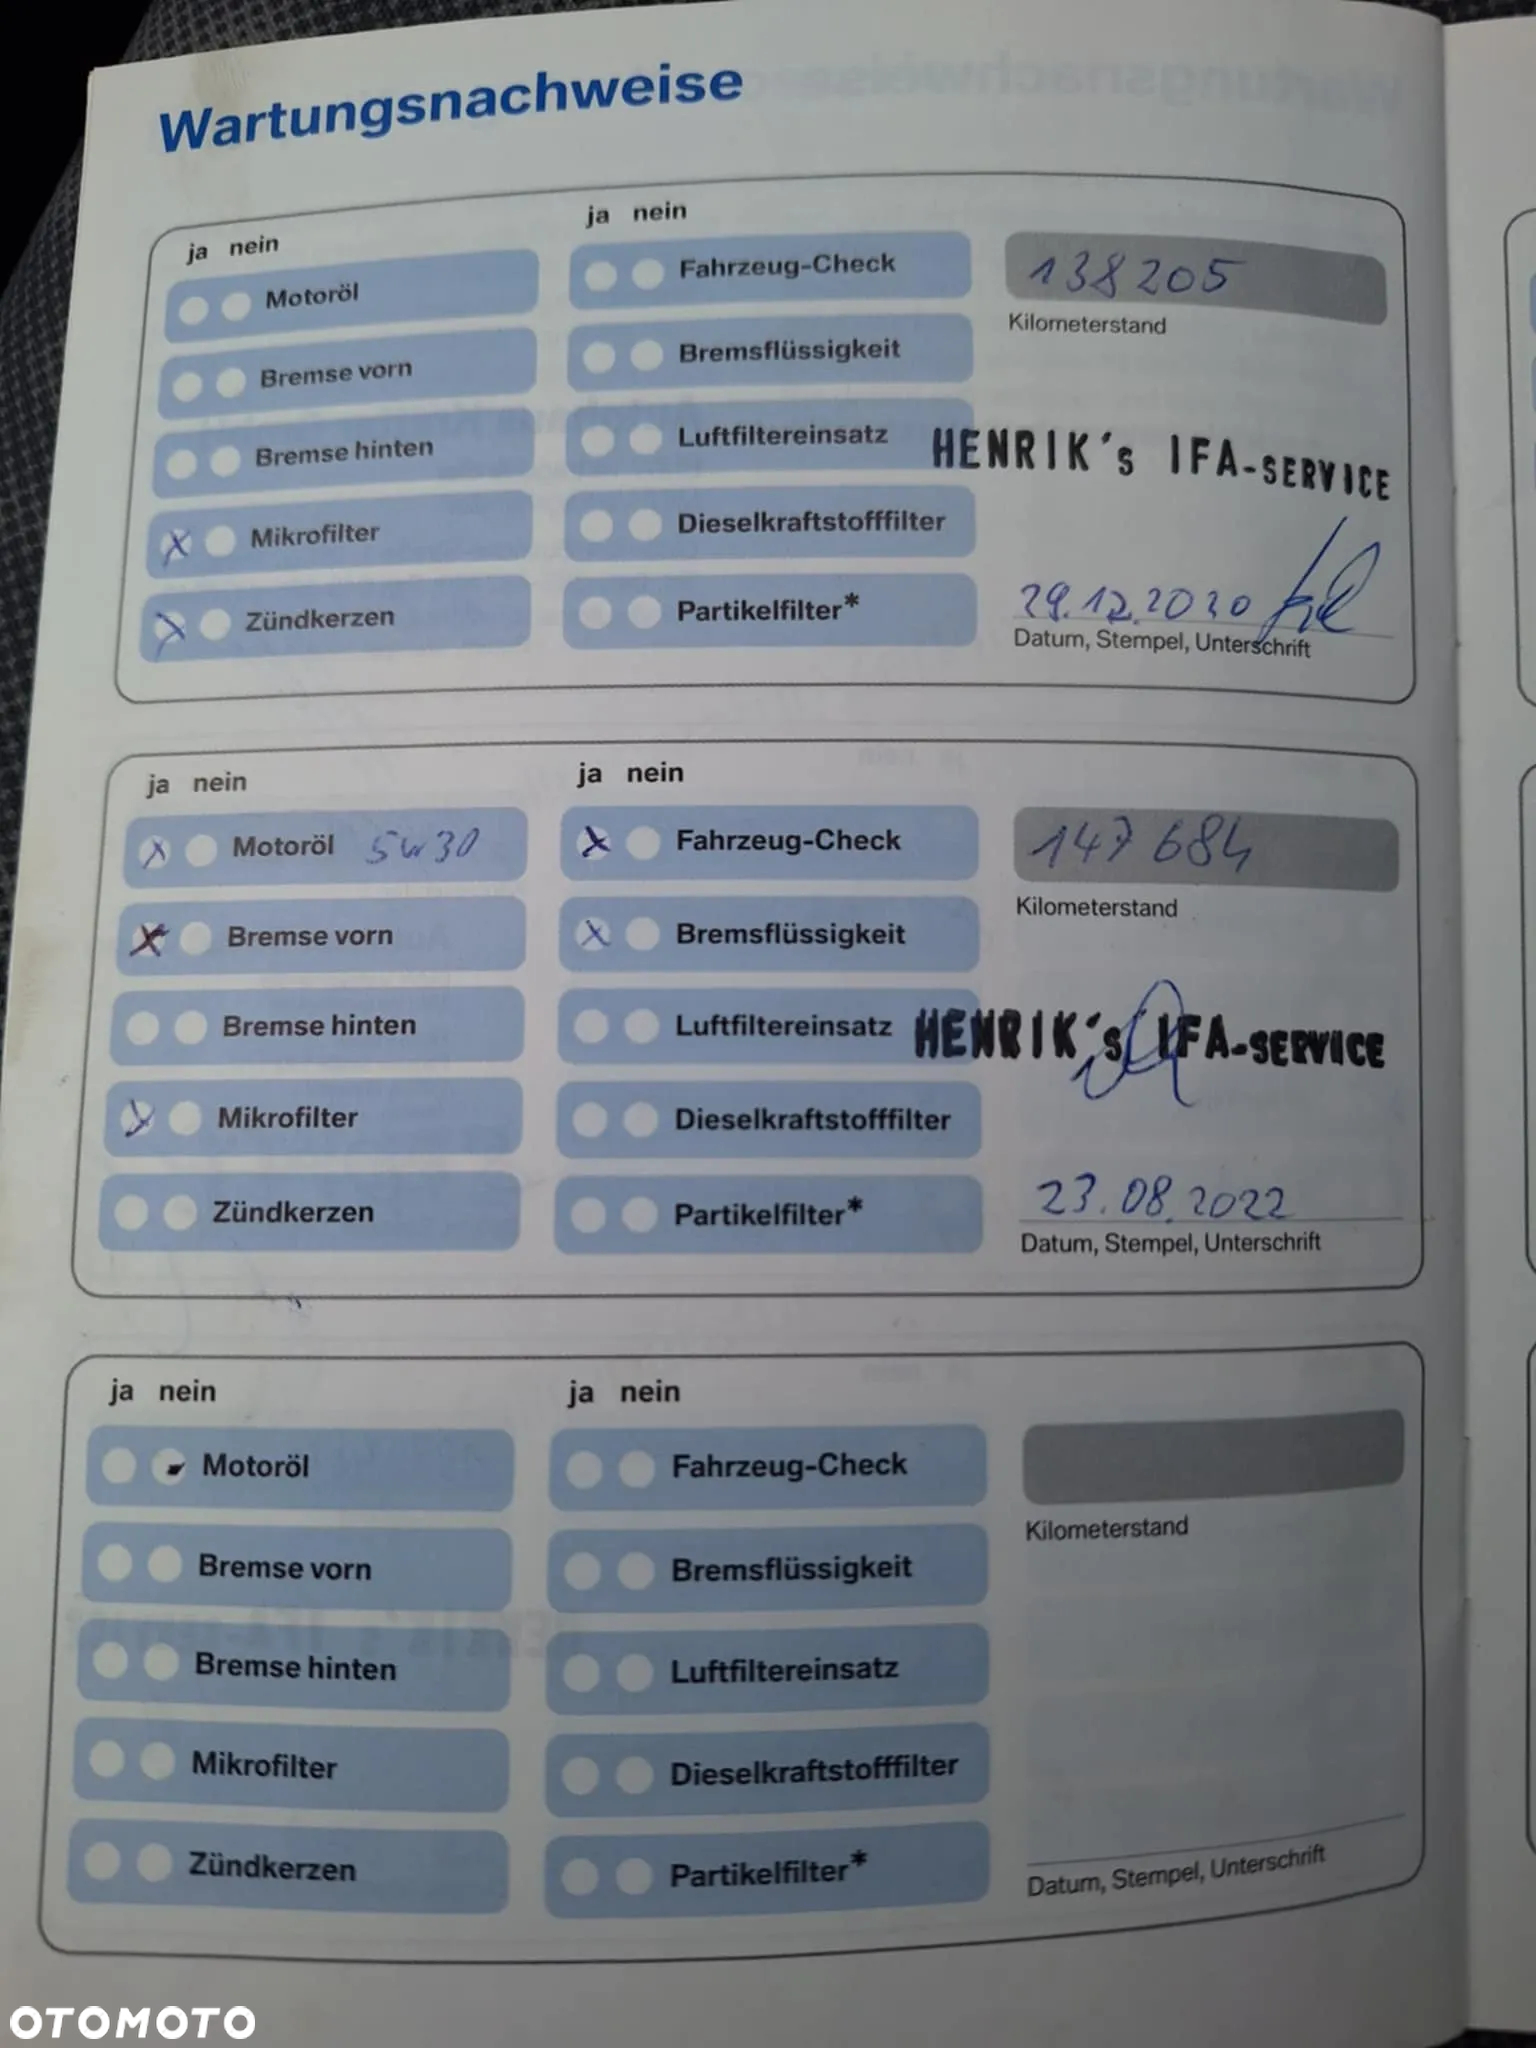 Wartungsnachweise
ja nein
ja nein
Motoröl
Fahrzeug-Check
138205
Kilometerstand
Bremse vorn
Bremsflüssigkeit
Bremse hinten
Luftfiltereinsatz
HENRIK's IFA-SERVICE
Mikrofilter
Dieselkraftstofffilter
Zündkerzen
Partikelfilter*
29.12.2020
Datum, Stempel, Unterschrift
ja nein
ja nein
Motoröl 5w30
Fahrzeug-Check
147 684
Kilometerstand
Bremse vorn
Bremsflüssigkeit
Bremse hinten
Luftfiltereinsatz
HENRIK's IFA-SERVICE
Mikrofilter
Dieselkraftstofffilter
Zündkerzen
Partikelfilter*
23.08.2022
Datum, Stempel, Unterschrift
ja nein
ja nein
Motoröl
Fahrzeug-Check
Kilometerstand
Bremse vorn
Bremsflüssigkeit
Bremse hinten
Luftfiltereinsatz
Mikrofilter
Dieselkraftstofffilter
Zündkerzen
Partikelfilter*
Datum, Stempel, Unterschrift
OTOMOTO